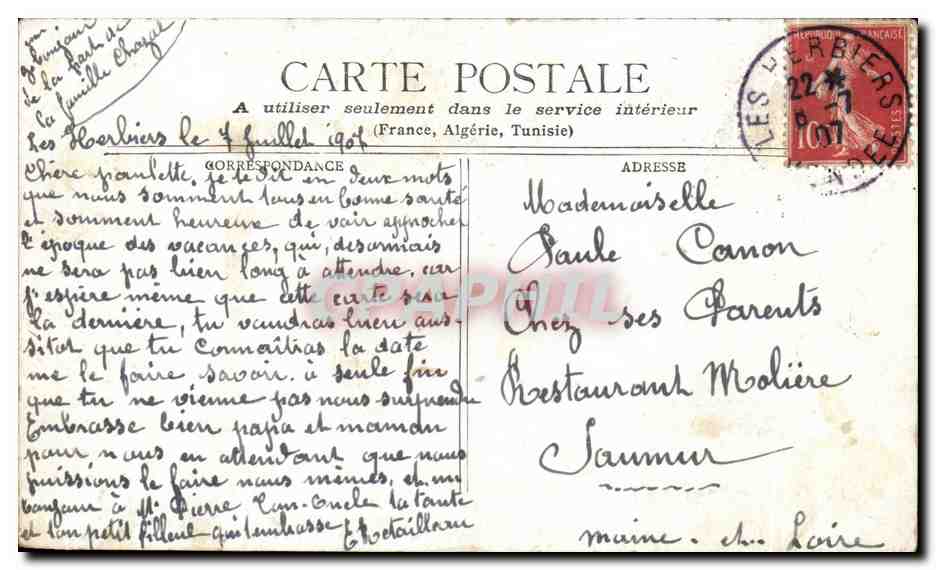 un
bonjour
de la part de
la famille Chazal
CARTE POSTALE
A utiliser seulement dans le service intérieur
(France, Algérie, Tunisie)
RÉPUBLIQUE FRANÇAISE
POSTES
10
LES HERBIERS
22 *
8 -7
07
VENDÉE
Les Herbiers le 7 Juillet 1907
CORRESPONDANCE
Chère paulette, je te dit en deux mots
que nous somment tous en bonne santé
et somment heureux de voir approcher
l'époque des vacances, qui, desormais
ne sera pas bien long à attendre, car
j'espère même que cette carte sera
la dernière, tu voudras bien aus-
sitot que tu connaîtras la date
me le faire savoir à seule fin
que tu ne vienne pas nous surprendre
Embrasse bien papa et maman
pour nous en attendant que nous
puissions le faire nous mêmes, et un
bonjour à Mr Pierre Ton Oncle ta tante
et ton petit filleul qui t'embrasse E Retailleau
ADRESSE
Mademoiselle
Paule Canon
Chez ses Parents
Restaurant Molière
Saumur
Maine-et-Loire
CPAPHIL